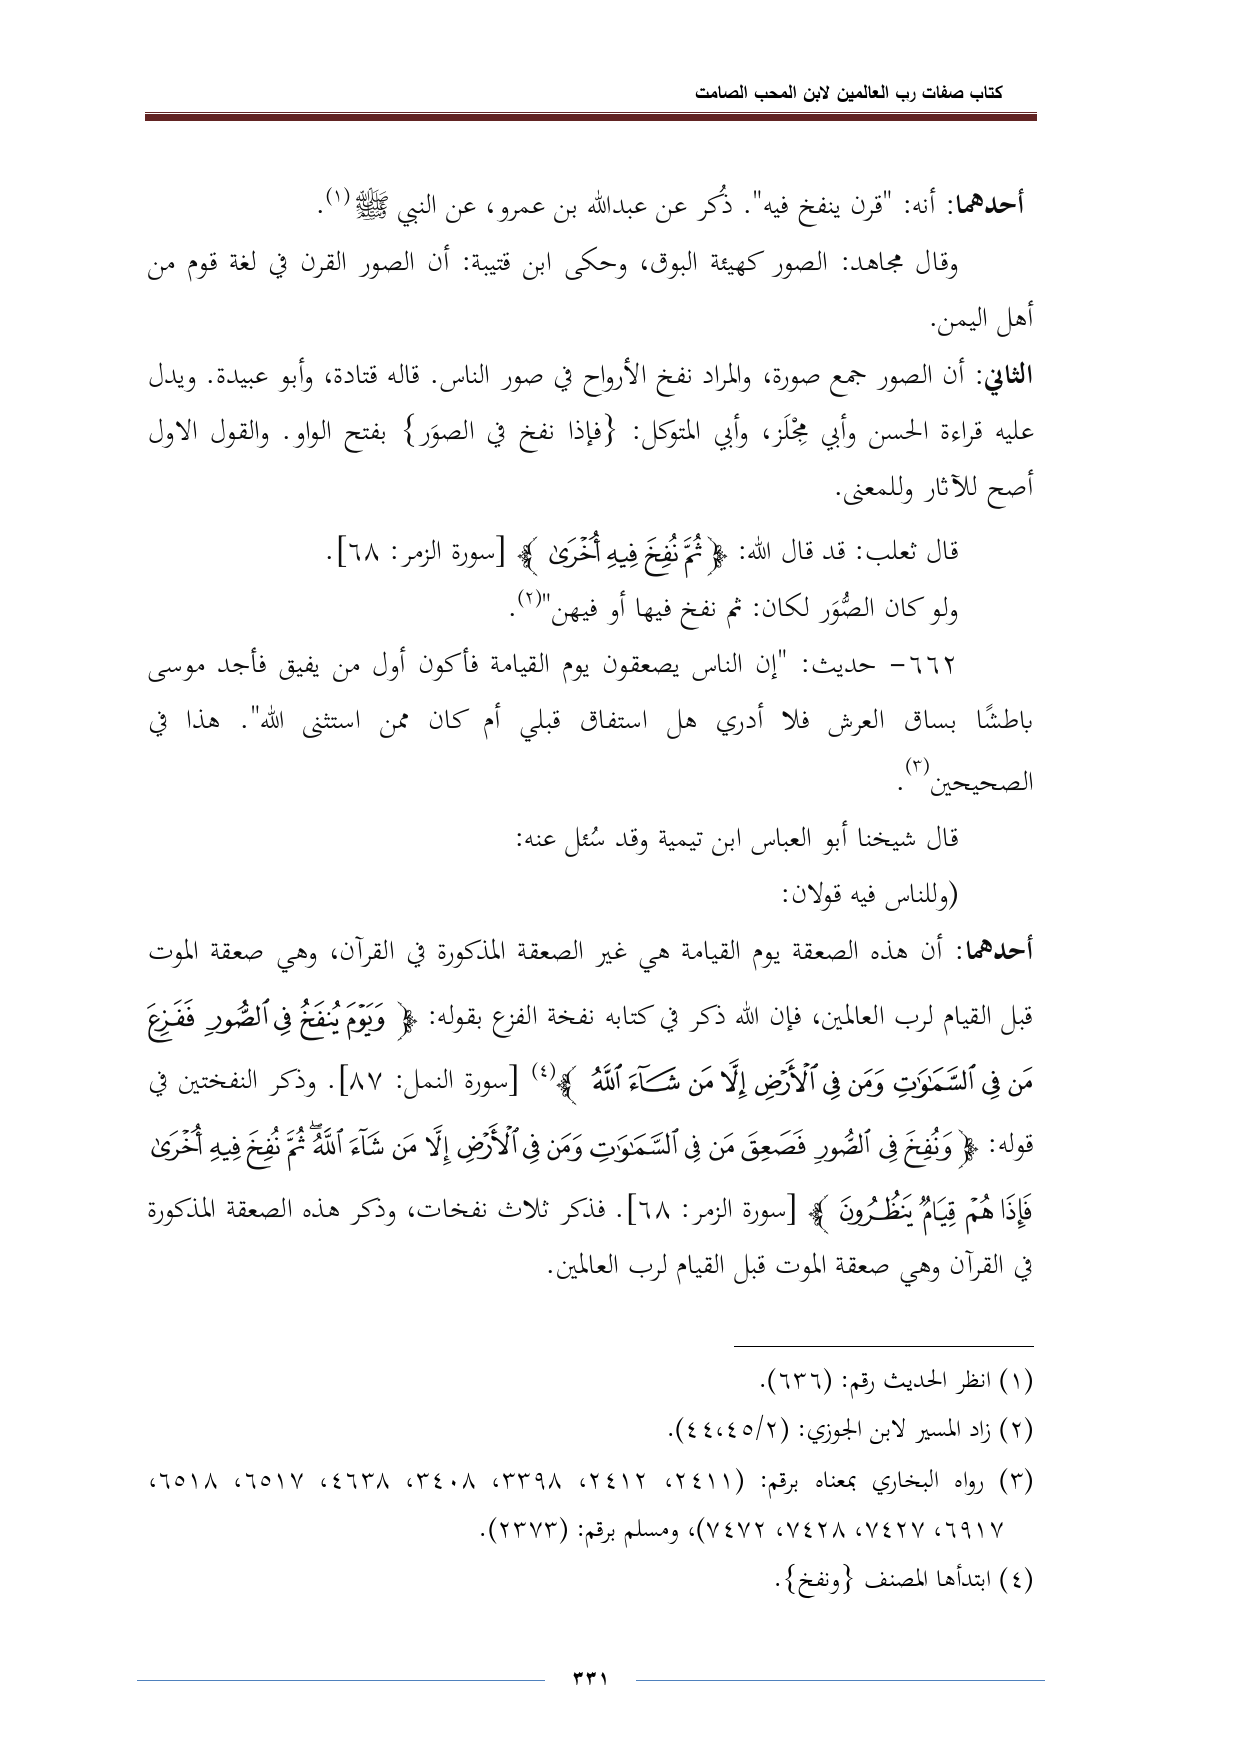 كتاب صفات رب العالمين لابن المحب الصامت
أحدهما: أنه: "قرن ينفخ فيه". ذُكر عن عبدالله بن عمرو، عن النبي ﷺ(١).
وقال مجاهد: الصور كهيئة البوق، وحكى ابن قتيبة: أن الصور القرن في لغة قوم من
أهل اليمن.
الثاني: أن الصور جمع صورة، والمراد نفخ الأرواح في صور الناس. قاله قتادة، وأبو عبيدة. ويدل
عليه قراءة الحسن وأبي مِجْلَز، وأبي المتوكل: {فإذا نفخ في الصوَر} بفتح الواو. والقول الاول
أصح للآثار وللمعنى.
قال ثعلب: قد قال الله: ﴿ ثُمَّ نُفِخَ فِيهِ أُخْرَىٰ ﴾ [سورة الزمر: ٦٨].
ولو كان الصُّوَر لكان: ثم نفخ فيها أو فيهن"(٢).
٦٦٢- حديث: "إن الناس يصعقون يوم القيامة فأكون أول من يفيق فأجد موسى
باطشًا بساق العرش فلا أدري هل استفاق قبلي أم كان ممن استثنى الله". هذا في
الصحيحين(٣).
قال شيخنا أبو العباس ابن تيمية وقد سُئل عنه:
(وللناس فيه قولان:
أحدهما: أن هذه الصعقة يوم القيامة هي غير الصعقة المذكورة في القرآن، وهي صعقة الموت
قبل القيام لرب العالمين، فإن الله ذكر في كتابه نفخة الفزع بقوله: ﴿ وَيَوْمَ يُنفَخُ فِى ٱلصُّورِ فَفَزِعَ
مَن فِى ٱلسَّمَٰوَٰتِ وَمَن فِى ٱلْأَرْضِ إِلَّا مَن شَآءَ ٱللَّهُ ﴾(٤) [سورة النمل: ٨٧]. وذكر النفختين في
قوله: ﴿ وَنُفِخَ فِى ٱلصُّورِ فَصَعِقَ مَن فِى ٱلسَّمَٰوَٰتِ وَمَن فِى ٱلْأَرْضِ إِلَّا مَن شَآءَ ٱللَّهُ ۖ ثُمَّ نُفِخَ فِيهِ أُخْرَىٰ
فَإِذَا هُمْ قِيَامٌ يَنظُرُونَ ﴾ [سورة الزمر: ٦٨]. فذكر ثلاث نفخات، وذكر هذه الصعقة المذكورة
في القرآن وهي صعقة الموت قبل القيام لرب العالمين.
(١) انظر الحديث رقم: (٦٣٦).
(٢) زاد المسير لابن الجوزي: (٤٤،٤٥/٢).
(٣) رواه البخاري بمعناه برقم: (٢٤١١، ٢٤١٢، ٣٣٩٨، ٣٤٠٨، ٤٦٣٨، ٦٥١٧، ٦٥١٨،
٦٩١٧، ٧٤٢٧، ٧٤٢٨، ٧٤٧٢)، ومسلم برقم: (٢٣٧٣).
(٤) ابتدأها المصنف {ونفخ}.
٣٣١